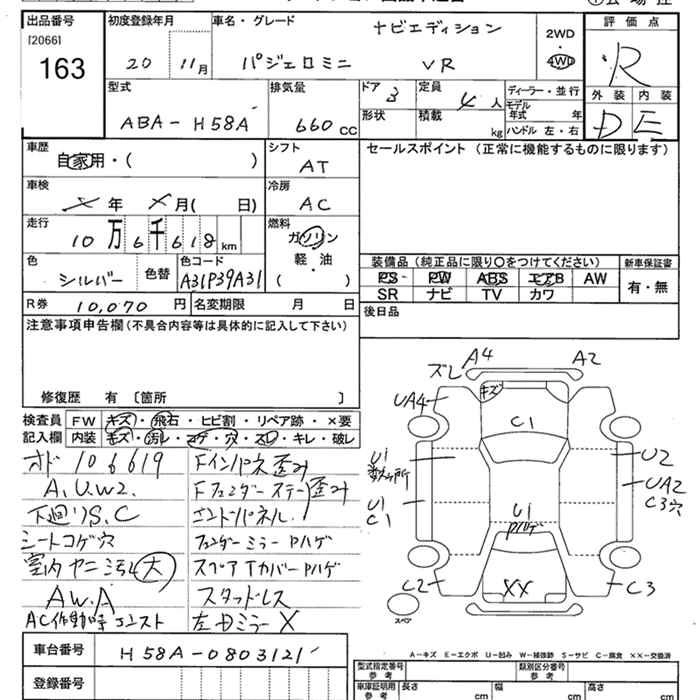 出品番号 初度登録年月 車名・グレード ナビエディション 2WD ・ 4WD 評価点
[2066]
163 20 11月 パジェロミニ VR R
型式 排気量 ドア 3 定員 4人 ディーラー・並行 外装 内装
ABA-H58A 660cc 形状 積載 kg モデル年式 年 D E
ハンドル 左・右
車歴 自家用・( ) シフト AT セールスポイント (正常に機能するものに限ります)
車検 年 月( 日) 冷房 AC
走行 10万6千618km 燃料 ガソリン 軽油 ・ ( )
色 シルバー 色替 色コード A31P39A31
装備品 (純正品に限り○をつけてください) 新車保証書
PS PW ABS エアB AW 有・無
SR ナビ TV カワ
R券 10,070円 名変期限 月 日 後日品
注意事項申告欄(不具合内容等は具体的に記入して下さい)
修復歴 有 〔箇所 〕
検査員記入欄 FW キズ・飛石・ヒビ割・リペア跡・×要
内装 キズ・汚レ・コゲ・穴・スレ・キレ・破レ
オド 106619 Fインパネ歪み
A.U.W2. Fフェンダーステー歪み
下廻りS.C エンドパネル.
シートコゲ穴 フェンダーミラーPハゲ
室内ヤニ汚レ大 スペアTカバーPハゲ
AW.A スタッドレス
AC作動時エンスト 左Dミラー X
A4 A2
ズレ キズ
UA4 C1
U1 数ヶ所 U2
UA2
U1 U1 C3穴
C1 Pハゲ
C2 XX C3
スペア
A-キズ E-エクボ U-凹み W-補修跡 S-サビ C-腐食 XX-交換済
車台番号 H58A-0803121
登録番号
型式指定番号 参考 類別区分番号 参考
車庫証明用 参考 長さ cm 幅 cm 高さ cm